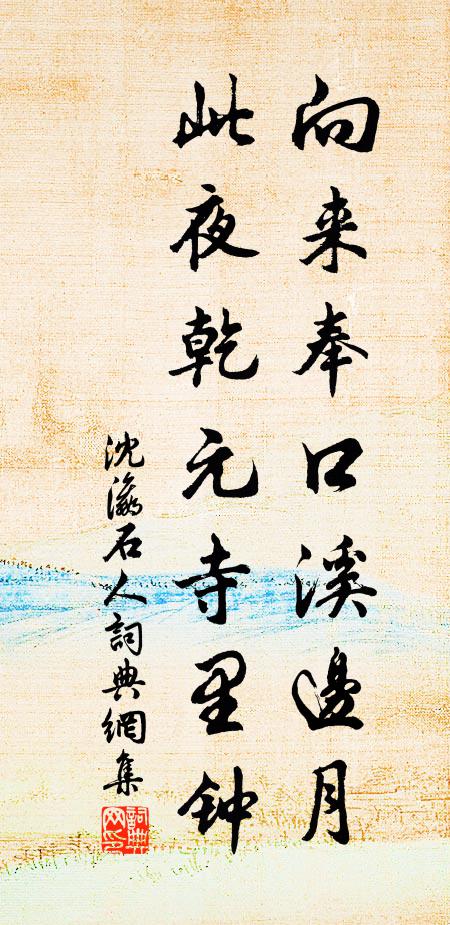 向来奉口溪邊月
此夜乾元寺里钟
沈瀛石人詞典網集
詞典网印